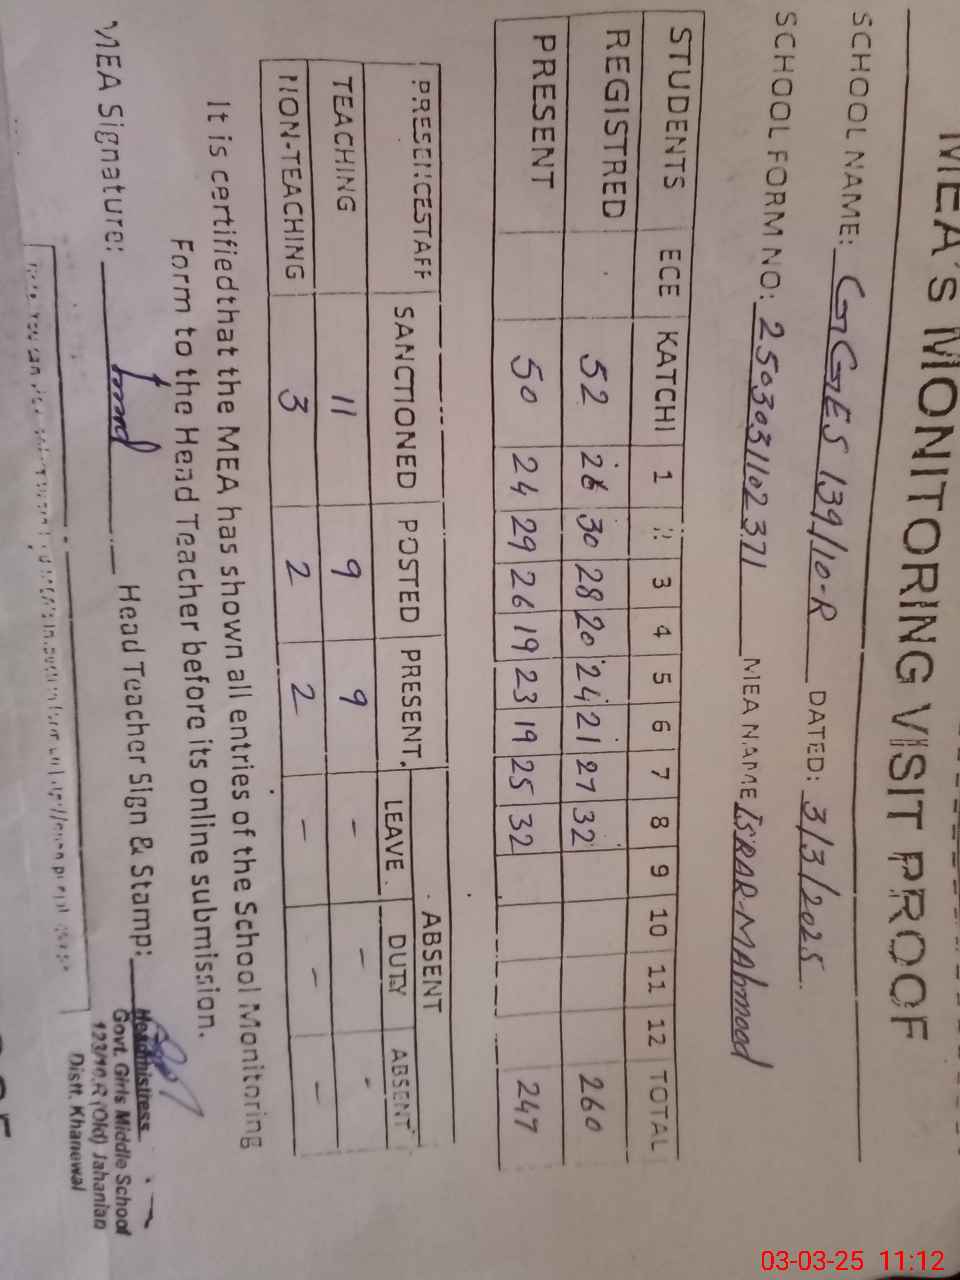 MEA'S MONITORING VISIT PROOF
SCHOOL NAME: GGES 139/10-R DATED: 3/3/2025
SCHOOL FORM NO: 2503031102371 MEA NAME ISRAR-MAhmood
STUDENTS ECE KATCHI 1 2 3 4 5 6 7 8 9 10 11 12 TOTAL
REGISTRED 52 26 30 28 20 24 21 27 32 260
PRESENT 50 24 29 26 19 23 19 25 32 247
PRESENCE STAFF SANCTIONED POSTED PRESENT ABSENT
LEAVE DUTY ABSENT
TEACHING 11 9 9 - - -
NON-TEACHING 3 2 2 - - -
It is certified that the MEA has shown all entries of the School Monitoring
Form to the Head Teacher before its online submission.
MEA Signature: Head Teacher Sign & Stamp:
Headmistress
Govt. Girls Middle School
(Old) Jahanian
Distt. Khanewal
03-03-25 11:12